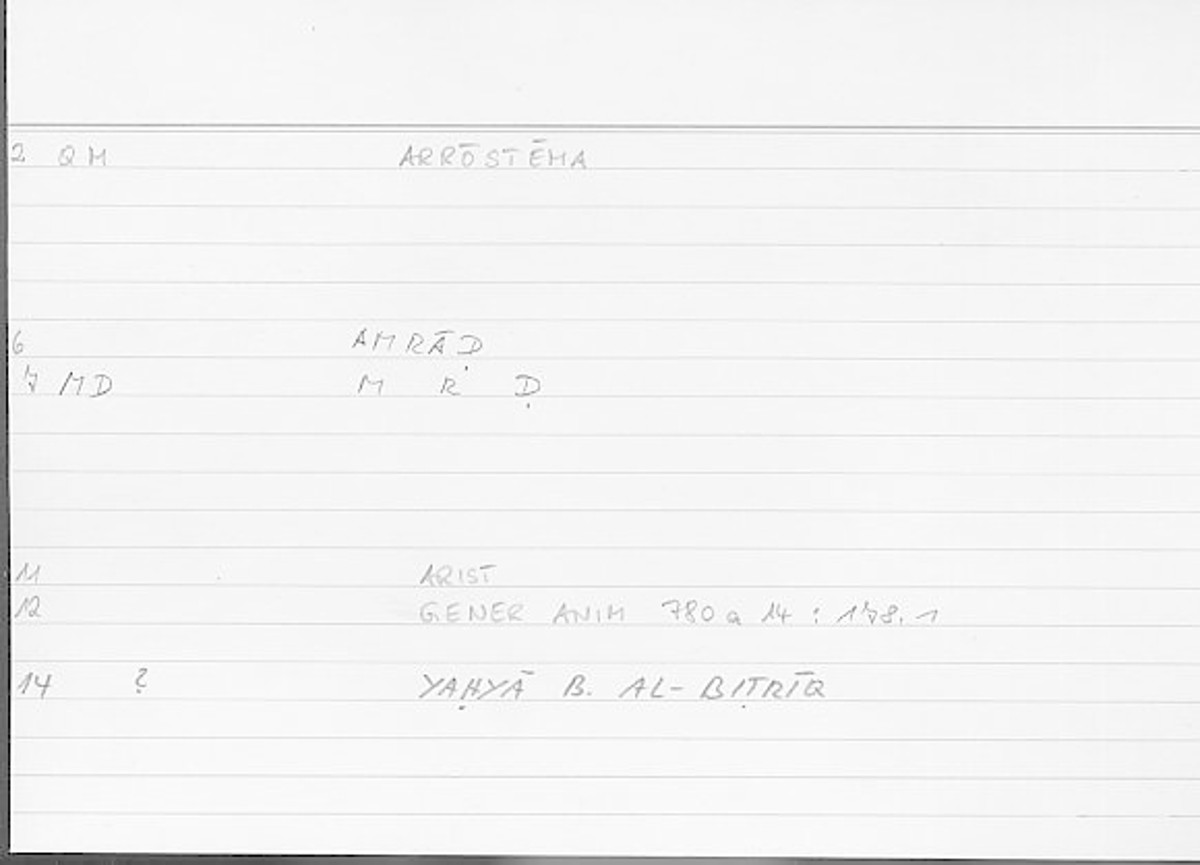 2 QM ARRŌSTĒMA
6 AMRĀḌ
7 MD M R Ḍ
11 ARIST
12 GENER ANIM 780 a 14 : 178.1
14 ? YAḤYĀ B. AL-BIṬRĪQ